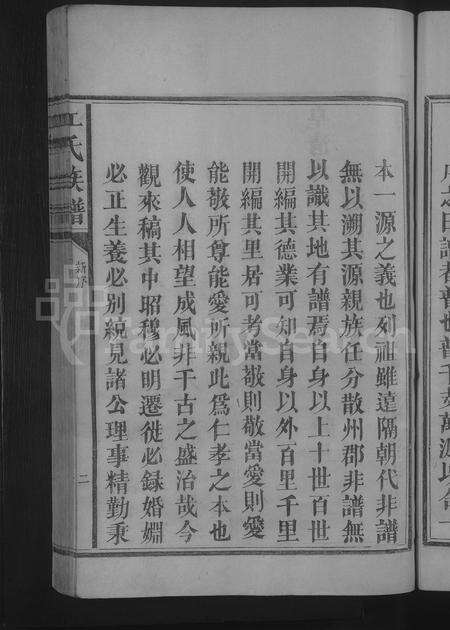 本一源之義也列祖雖遠隔朝代非譜
無以溯其源親族任分散州郡非譜無
以識其地有譜焉自身以上十世百世
開編其德業可知自身以外百里千里
開編其里居可考當敬則敬當愛則愛
能敬所尊能愛所親此爲仁孝之本也
使人人相望成風非千古之盛治哉今
觀來稿其中昭穆必明遷徙必録婚姻
必正生養必別綂見諸公理事精勤秉
氏族譜
二
FamilySearch